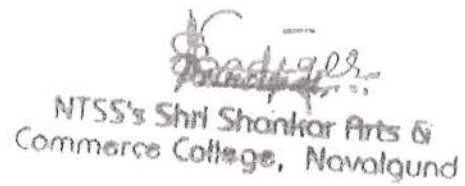 NTSS's Shri Shankar Arts &
Commerce College, Navalgund